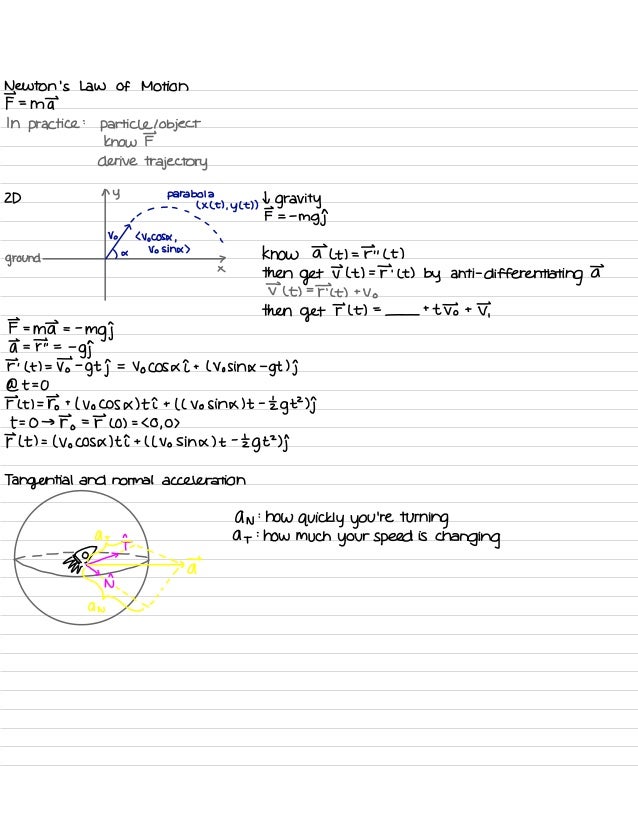 Newton's Law of Motion
F⃗ = ma⃗
In practice: particle/object
know F⃗
derive trajectory
2D
y
parabola
(x(t), y(t))
↓ gravity
F⃗ = -mgĵ
v₀
<v₀cosα,
v₀sinα>
α
ground
x
know a⃗(t) = r⃗''(t)
then get v⃗(t) = r⃗'(t) by anti-differentiating a⃗
v⃗(t) = r⃗'(t) + v₀
then get r⃗(t) = ____ + tv⃗₀ + v⃗₁
F⃗ = ma⃗ = -mgĵ
a⃗ = r⃗'' = -gĵ
r⃗'(t) = v⃗₀ - gtĵ = v₀cosαî + (v₀sinα - gt)ĵ
@ t=0
r⃗(t) = r⃗₀ + (v₀cosα)tî + ((v₀sinα)t - ½gt²)ĵ
t=0 → r⃗₀ = r⃗(0) = <0,0>
r⃗(t) = (v₀cosα)tî + ((v₀sinα)t - ½gt²)ĵ
Tangential and normal acceleration
a_N: how quickly you're turning
a_T: how much your speed is changing
a_T
T̂
a⃗
N̂
a_N